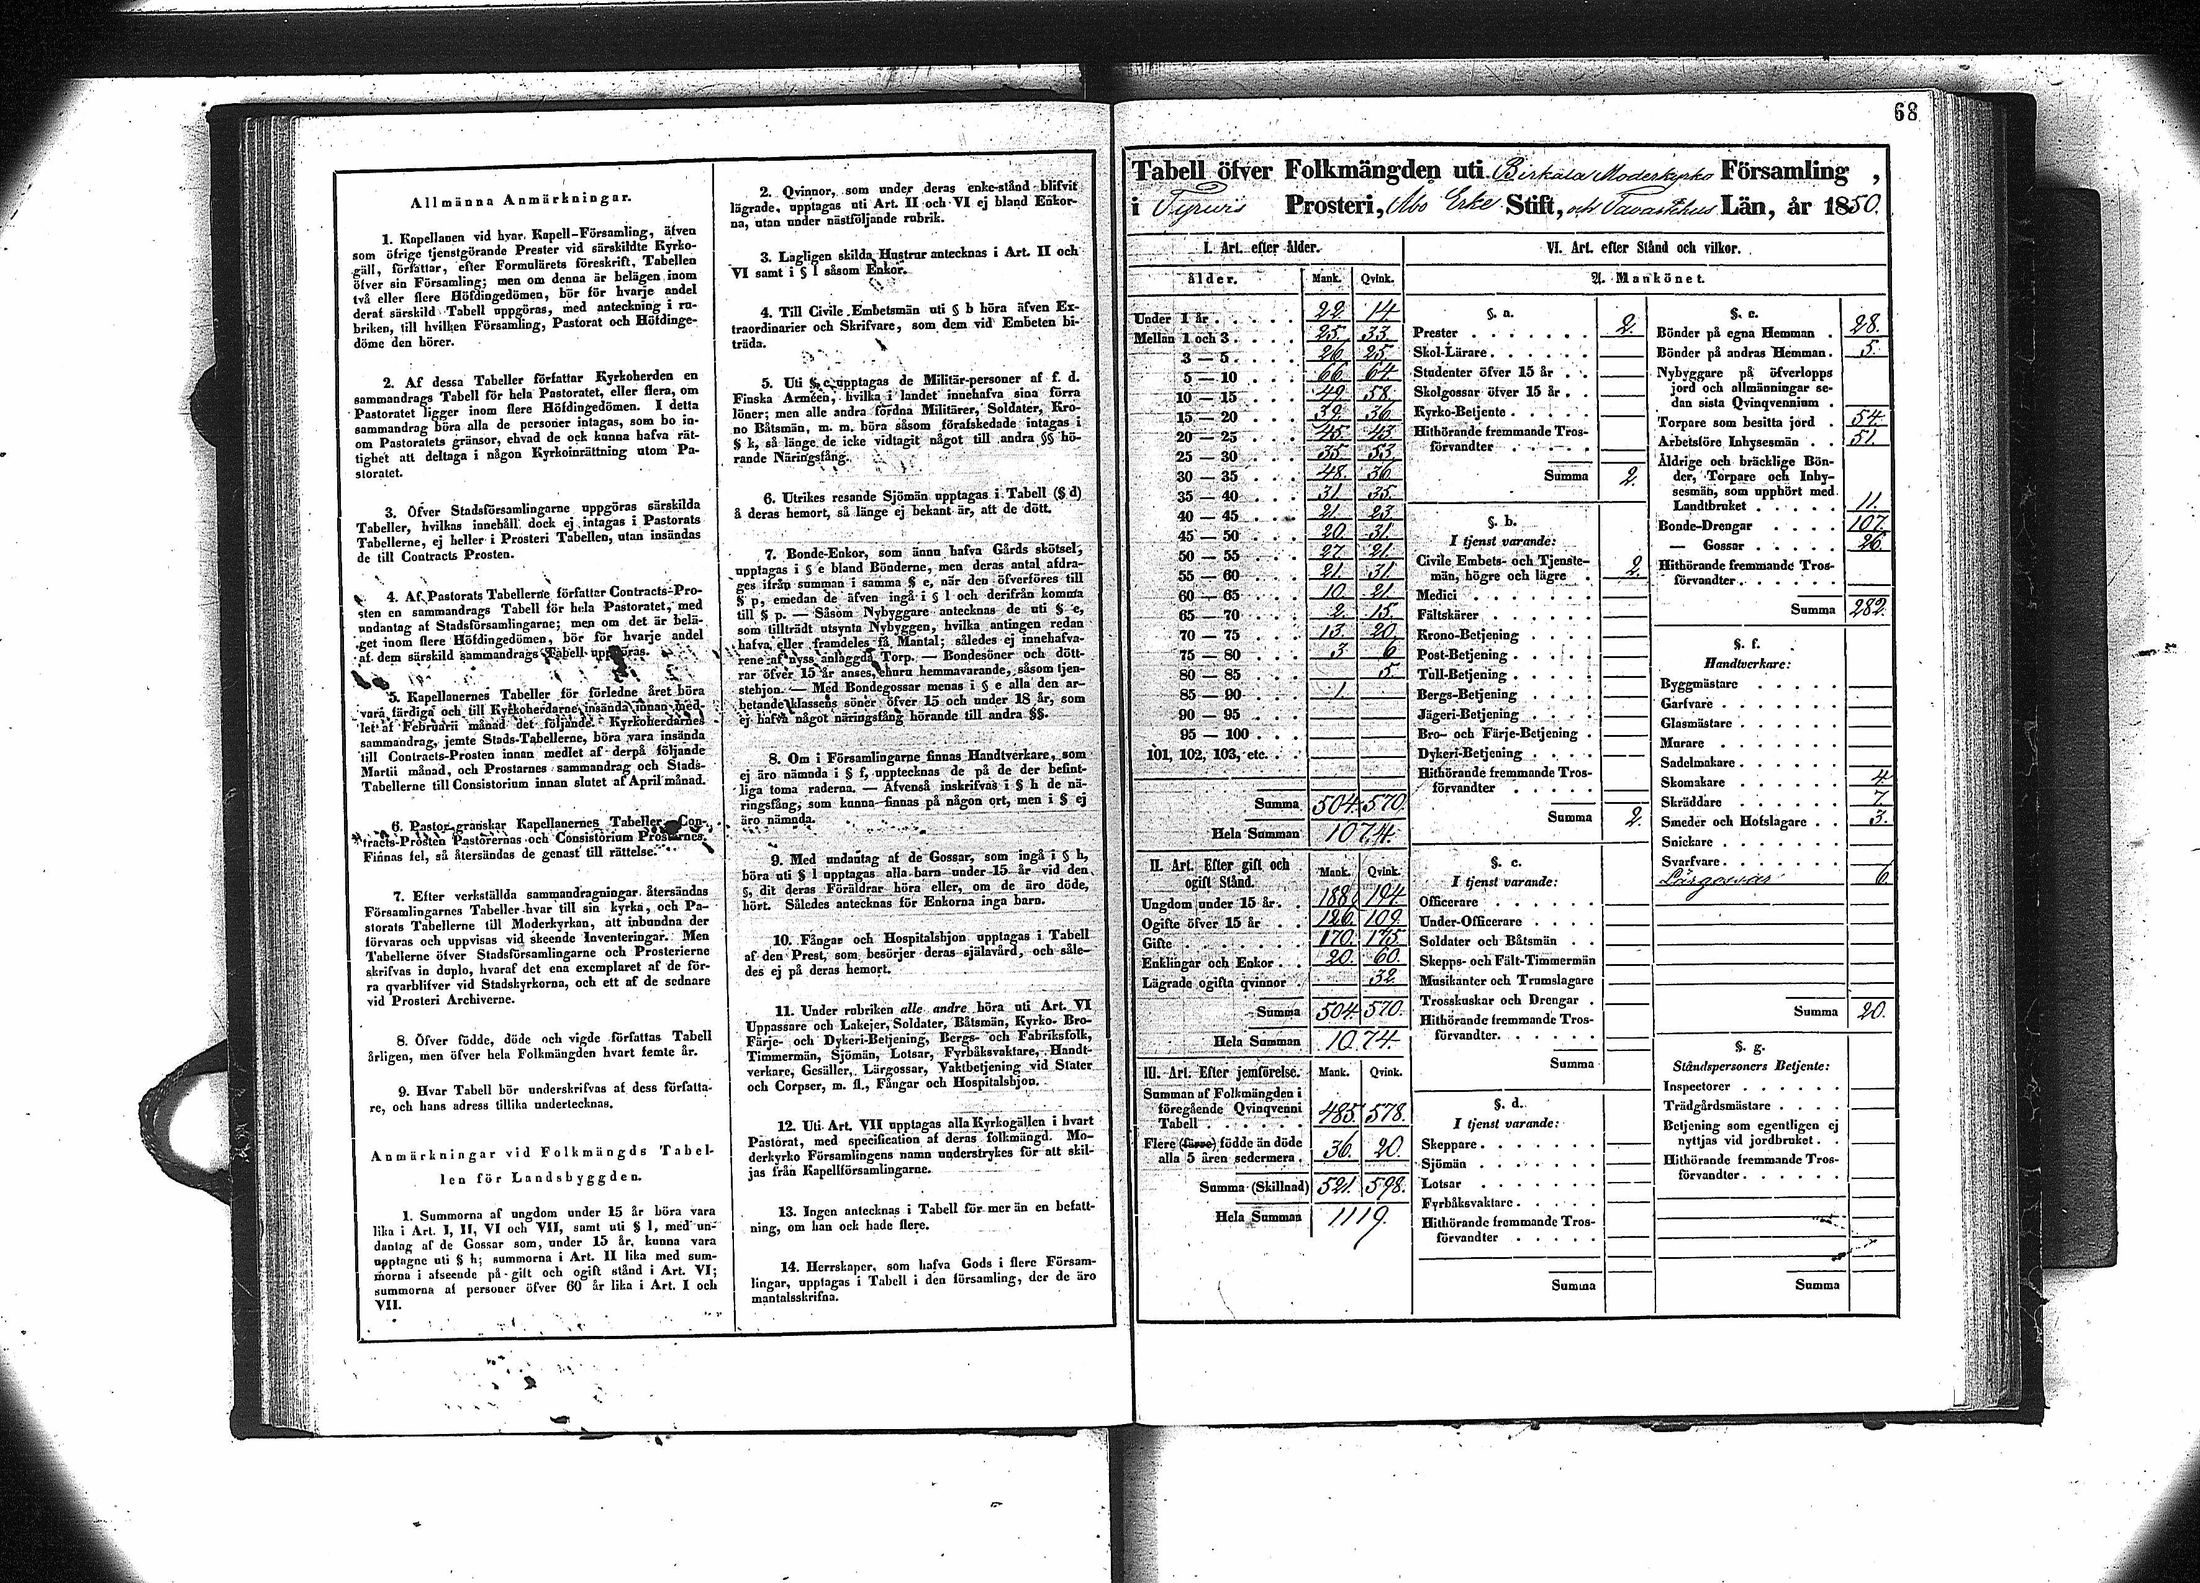 Allmänna Anmärkningar.
1. Kapellanen vid hvar Kapell-Församling, äfven
som öfrige tjenstgörande Prester vid särskildte Kyrko-
gäll, författar, efter Formulärets föreskrift, Tabellen
öfver sin Församling; men om denna är belägen inom
två eller flere Höfdingedömen, bör för hvarje andel
deraf särskild Tabell uppgöras, med anteckning i ru-
briken, till hvilken Församling, Pastorat och Höfdinge-
döme den hörer.
2. Af dessa Tabeller författar Kyrkoherden en
sammandrags Tabell för hela Pastoratet, eller flera, om
Pastoratet ligger inom flere Höfdingedömen. I detta
sammandrag böra alla de personer intagas, som bo in-
om Pastoratets gränsor, ehvad de ock kunna hafva rät-
tighet att deltaga i någon Kyrkoinrättning utom Pa-
storatet.
3. Öfver Stadsförsamlingarne uppgöras särskilda
Tabeller, hvilkas innehåll dock ej intagas i Pastorats
Tabellerne, ej heller i Prosteri Tabellen, utan insändas
de till Contracts Prosten.
4. Af Pastorats Tabellerne författar Contracts-Pro-
sten en sammandrags Tabell för hela Pastoratet, med
undantag af Stadsförsamlingarne; men om det är belä-
get inom flere Höfdingedömen, bör för hvarje andel
af dem särskild sammandrags Tabell uppgöras.
5. Kapellanernes Tabeller för förledne året böra
vara färdiga och till Kyrkoherdarne insända innan med-
let af Februarii månad det följande. Kyrkoherdarnes
sammandrag, jemte Stads-Tabellerne, böra vara insända
till Contracts-Prosten innan medlet af derpå följande
Martii månad, och Prostarnes sammandrag och Stads-
Tabellerne till Consistorium innan slutet af April månad.
6. Pastor granskar Kapellanernes Tabeller, Con-
tracts-Prosten Pastorernas och Consistorium Prostarnes.
Finnas fel, så återsändas de genast till rättelse.
7. Efter verkställda sammandragningar återsändas
Församlingarnes Tabeller hvar till sin kyrka, och Pa-
storats Tabellerne till Moderkyrkan, att inbundna der
förvaras och uppvisas vid skeende Inventeringar. Men
Tabellerne öfver Stadsförsamlingarne och Prosterierne
skrifvas in duplo, hvaraf det ena exemplaret af de för-
ra qvarblifver vid Stadskyrkorna, och ett af de sednare
vid Prosteri Archiverne.
8. Öfver födde, döde och vigde författas Tabell
årligen, men öfver hela Folkmängden hvart femte år.
9. Hvar Tabell bör underskrifvas af dess författa-
re, och hans adress tillika undertecknas.
Anmärkningar vid Folkmängds Tabel-
len för Landsbyggden.
1. Summorna af ungdom under 15 år böra vara
lika i Art. I, II, VI och VII, samt uti § l, med un-
dantag af de Gossar som, under 15 år, kunna vara
upptagne uti § h; summorna i Art. II lika med sum-
morna i afseende på gift och ogift stånd i Art. VI;
summorna af personer öfver 60 år lika i Art. I och
VII.
2. Qvinnor, som under deras enke-stånd blifvit
lägrade, upptagas uti Art. II och VI ej bland Enkor-
na, utan under nästföljande rubrik.
3. Lagligen skilda Hustrur antecknas i Art. II och
VI samt i § l såsom Enkor.
4. Till Civile Embetsmän uti § b höra äfven Ex-
traordinarier och Skrifvare, som dem vid Embeten bi-
träda.
5. Uti § c upptagas de Militär-personer af f. d.
Finska Arméen, hvilka i landet innehafva sina förra
löner; men alle andra fördna Militärer, Soldater, Kro-
no Båtsmän, m. m. böra såsom förafskedade intagas i
§ k, så länge de icke vidtagit något till andra §§ hö-
rande Näringsfång.
6. Utrikes resande Sjömän upptagas i Tabell (§ d)
å deras hemort, så länge ej bekant är, att de dött.
7. Bonde-Enkor, som ännu hafva Gårds skötsel,
upptagas i § e bland Bönderne, men deras antal afdra-
ges ifrån summan i samma § e, när den öfverföres till
§ p, emedan de äfven ingå i § l och derifrån komma
till § p. — Såsom Nybyggare antecknas de uti § e,
som tillträdt utsynta Nybyggen, hvilka antingen redan
hafva eller framdeles få Mantal; således ej innehafva-
rene af nyss anlaggda Torp. — Bondesöner och dött-
rar öfver 15 år anses, ehuru hemmavarande, såsom tjen-
stehjon. — Med Bondegossar menas i § e alla den ar-
betande klassens söner öfver 15 och under 18 år, som
ej hafva något näringsfång hörande till andra §§.
8. Om i Församlingarne finnas Handtverkare, som
ej äro nämnda i § f, upptecknas de på de der befint-
liga toma raderna. — Äfvenså inskrifvas i § h de nä-
ringsfång, som kunna finnas på någon ort, men i § ej
äro nämnda.
9. Med undantag af de Gossar, som ingå i § h,
böra uti § l upptagas alla barn under 15 år vid den
§, dit deras Föräldrar höra eller, om de äro döde,
hört. Således antecknas för Enkorna inga barn.
10. Fångar och Hospitalshjon upptagas i Tabell
af den Prest, som besörjer deras själavård, och såle-
des ej på deras hemort.
11. Under rubriken alle andre höra uti Art. VI
Uppassare och Lakejer, Soldater, Båtsmän, Kyrko- Bro-
Färje- och Dykeri-Betjening, Bergs- och Fabriksfolk,
Timmermän, Sjömän, Lotsar, Fyrbåksvaktare, Handt-
verkare, Gesäller, Lärgossar, Vaktbetjening vid Stater
och Corpser, m. fl., Fångar och Hospitalshjon.
12. Uti Art. VII upptagas alla Kyrkogällen i hvart
Pastorat, med specification af deras folkmängd. Mo-
derkyrko Församlingens namn understrykes för att skil-
jas från Kapellförsamlingarne.
13. Ingen antecknas i Tabell för mer än en befatt-
ning, om han ock hade flere.
14. Herrskaper, som hafva Gods i flere Försam-
lingar, upptagas i Tabell i den församling, der de äro
mantalsskrifna.
68
Tabell öfver Folkmängden uti Birkala Moderkyrko Församling,
i Tyrvis Prosteri, Åbo Erke Stift, och Tavastehus Län, år 1850.
I. Art. efter ålder.
ålder. Mank. Qvink.
Under 1 år 22. 14.
Mellan 1 och 3 25. 33.
3 — 5 26. 25.
5 — 10 66. 64.
10 — 15 49. 58.
15 — 20 39. 36.
20 — 25 45. 43.
25 — 30 35. 53.
30 — 35 48. 36.
35 — 40 31. 35.
40 — 45 21. 23.
45 — 50 20. 31.
50 — 55 27. 21.
55 — 60 21. 31.
60 — 65 10. 21.
65 — 70 2. 15.
70 — 75 13. 20.
75 — 80 3. 6.
80 — 85 5.
85 — 90 1.
90 — 95
95 — 100
101, 102, 103, etc.
Summa 504. 570.
Hela Summan 1074.
II. Art. Efter gift och
ogift Stånd. Mank. Qvink.
Ungdom under 15 år 188. 194.
Ogifte öfver 15 år 126. 109.
Gifte 170. 175.
Enklingar och Enkor 20. 60.
Lägrade ogifta qvinnor 32.
Summa 504. 570.
Hela Summan 1074.
III. Art. Efter jemförelse. Mank. Qvink.
Summan af Folkmängden i
föregående Qvinqvenni
Tabell 485. 578.
Flere (färre) födde än döde
alla 5 åren sedermera 36. 20.
Summa (Skillnad) 521. 598.
Hela Summan 1119.
VI. Art. efter Stånd och vilkor.
A. Mankönet.
§. a.
Prester 2.
Skol-Lärare
Studenter öfver 15 år
Skolgossar öfver 15 år
Kyrko-Betjente
Hithörande fremmande Tros-
förvandter
Summa 2.
§. b.
I tjenst varande:
Civile Embets- och Tjenste-
män, högre och lägre 2.
Medici
Fältskärer
Krono-Betjening
Post-Betjening
Tull-Betjening
Bergs-Betjening
Jägeri-Betjening
Bro- och Färje-Betjening
Dykeri-Betjening
Hithörande fremmande Tros-
förvandter
Summa 2.
§. c.
I tjenst varande:
Officerare
Under-Officerare
Soldater och Båtsmän
Skepps- och Fält-Timmermän
Musikanter och Trumslagare
Trosskuskar och Drengar
Hithörande fremmande Tros-
förvandter
Summa
§. d.
I tjenst varande:
Skeppare
Sjömän
Lotsar
Fyrbåksvaktare
Hithörande fremmande Tros-
förvandter
Summa
§. e.
Bönder på egna Hemman 28.
Bönder på andras Hemman 5.
Nybyggare på öfverlopps
jord och allmänningar se-
dan sista Qvinqvennium
Torpare som besitta jord 54.
Arbetsföre Inhysesmän 51.
Åldrige och bräcklige Bön-
der, Torpare och Inhy-
sesmän, som upphört med
Landtbruket 11.
Bonde-Drengar 107.
— Gossar 26.
Hithörande fremmande Tros-
förvandter
Summa 282.
§. f.
Handtverkare:
Byggmästare
Garfvare
Glasmästare
Murare
Sadelmakare
Skomakare 4.
Skräddare 7.
Smeder och Hofslagare 3.
Snickare
Svarfvare
Lärgossar 6.
Summa 20.
§. g.
Ståndspersoners Betjente:
Inspectorer
Trädgårdsmästare
Betjening som egentligen ej
nyttjas vid jordbruket
Hithörande fremmande Tros-
förvandter
Summa